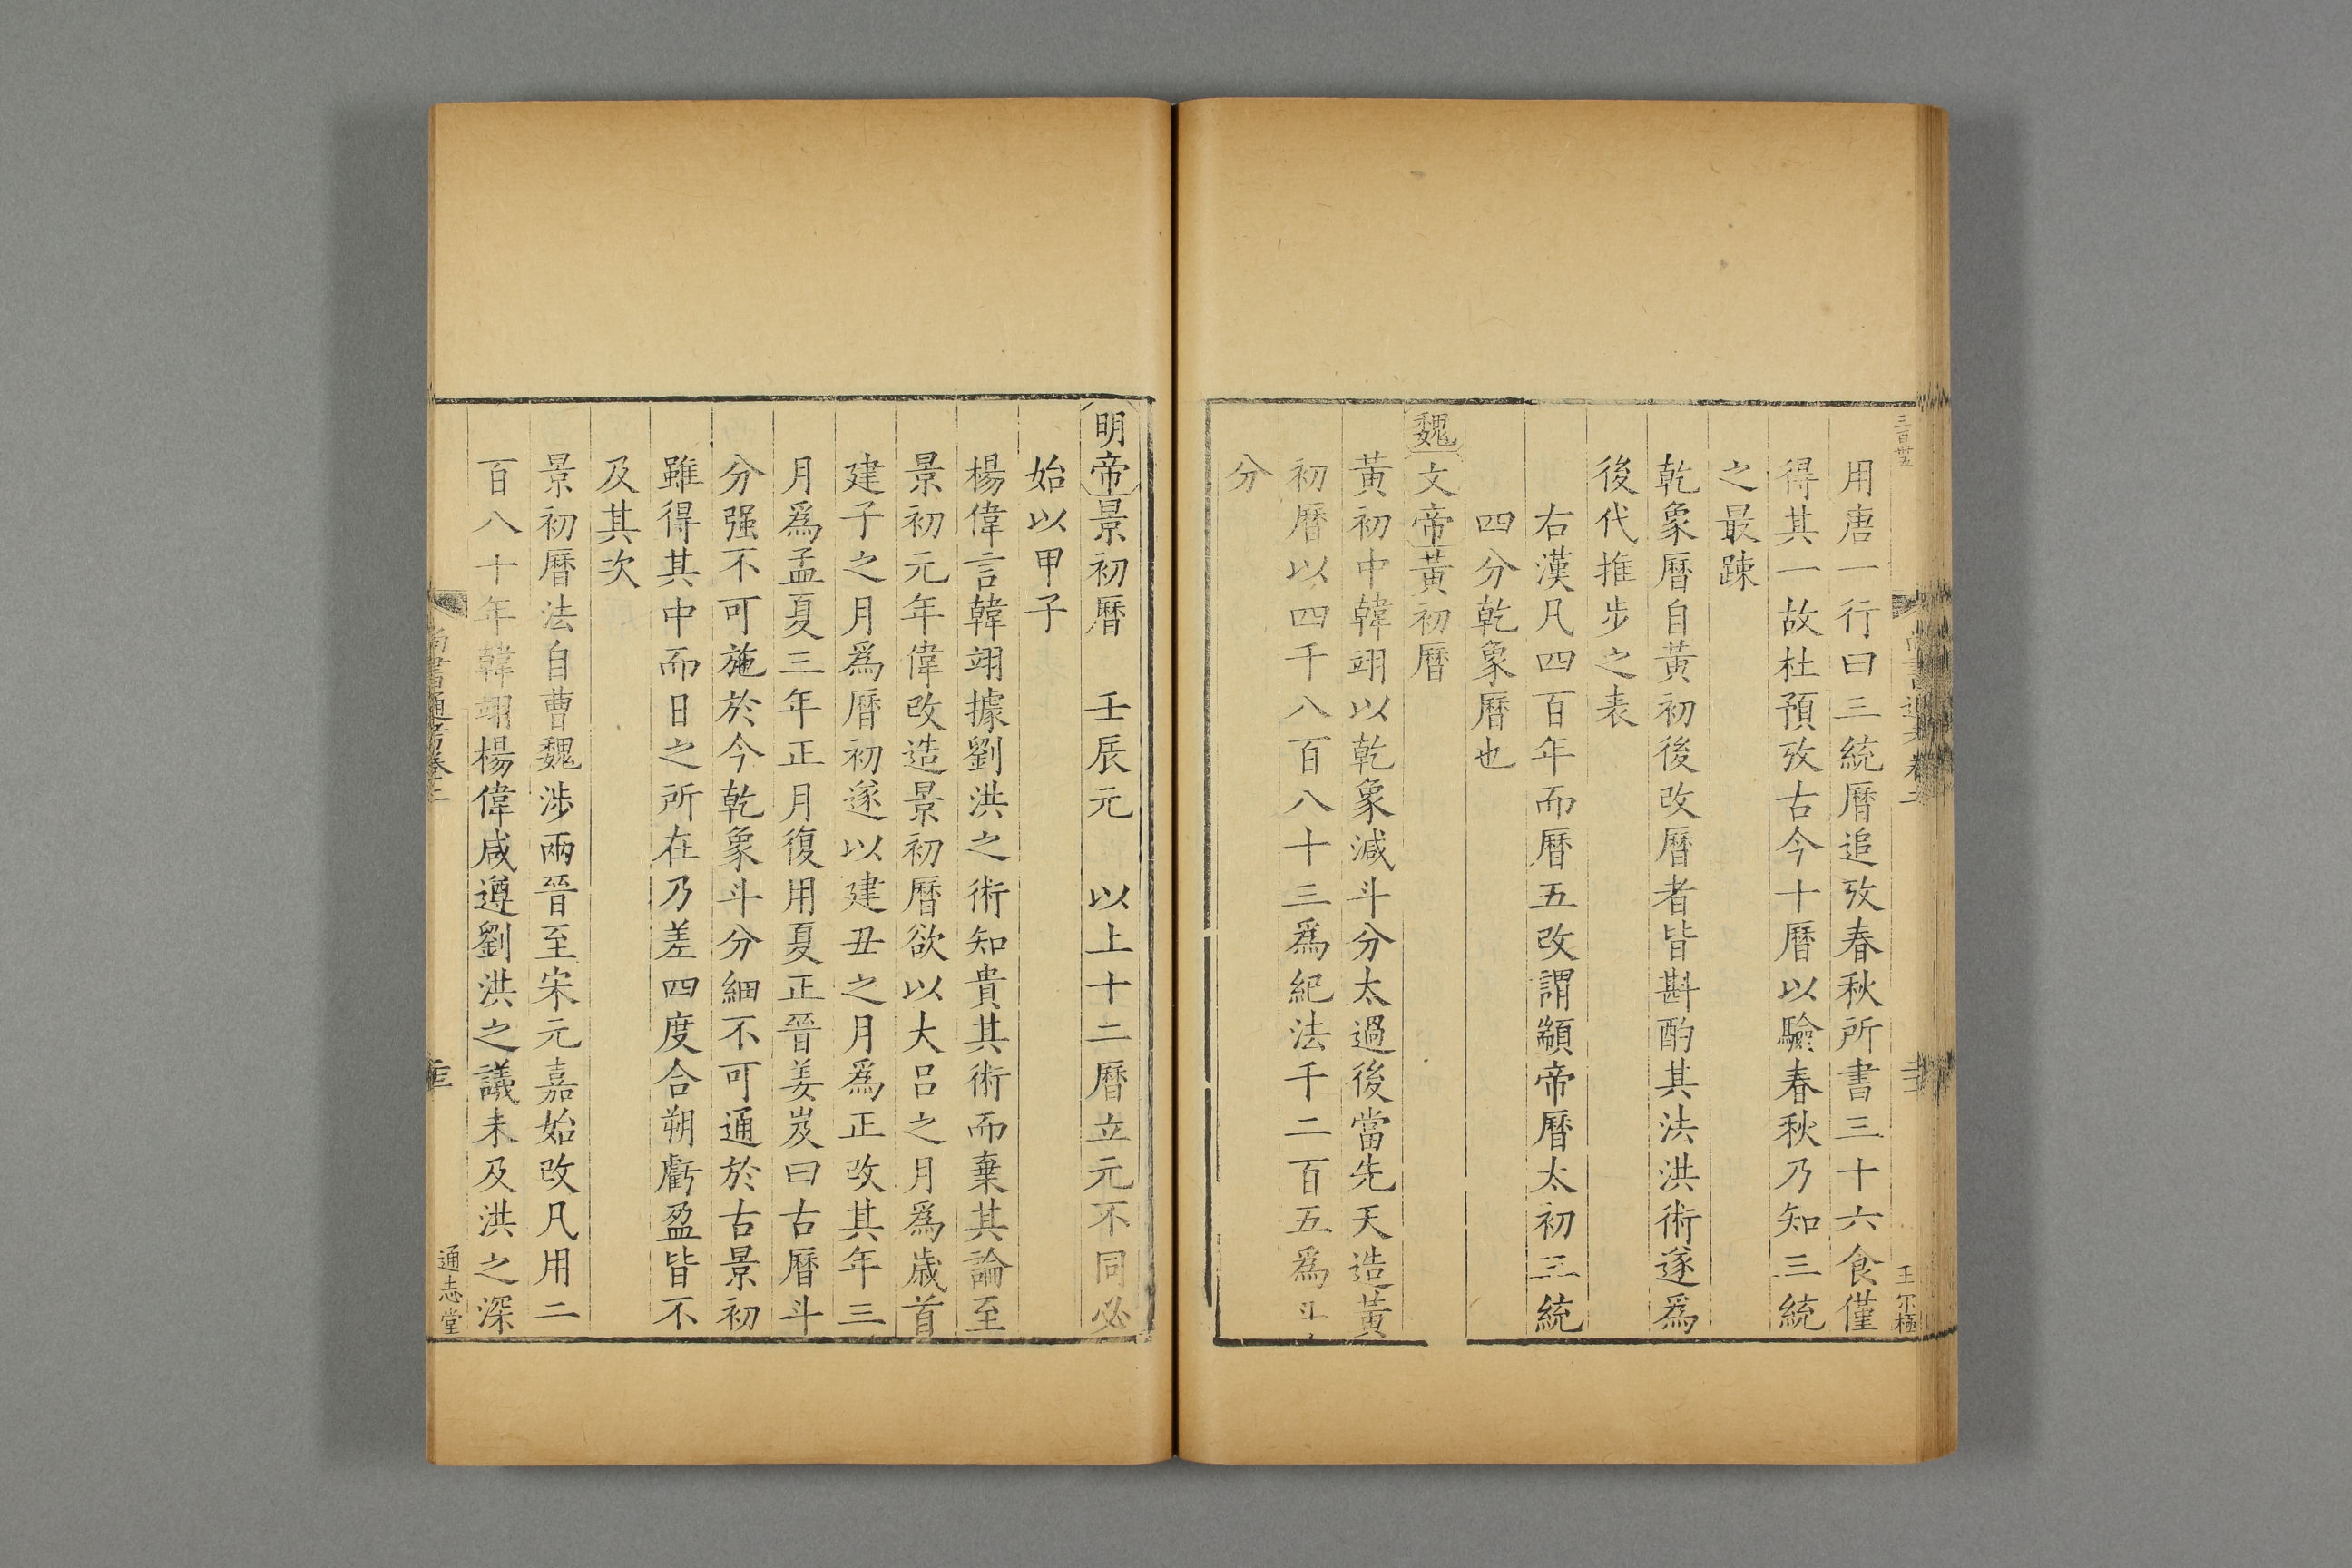 三百廿五
用唐一行曰三統曆追攷春秋所書三十六食僅
得其一故杜預攷古今十曆以驗春秋乃知三統
之最踈
乾象曆自黃初後改曆者皆斟酌其法洪術遂爲
後代推步之表
右漢凡四百年而曆五改謂顓帝曆太初三統
四分乾象曆也
魏文帝黃初曆
黃初中韓翊以乾象減斗分太過後當先天造黃
初曆以四千八百八十三爲紀法千二百五爲斗
分
明帝景初曆 壬辰元 以上十二曆立元不同必
始以甲子
楊偉言韓翊據劉洪之術知貴其術而棄其論至
景初元年偉改造景初曆欲以大吕之月爲歲首
建子之月爲曆初遂以建丑之月爲正改其年三
月爲孟夏三年正月復用夏正晉姜岌曰古曆斗
分强不可施於今乾象斗分細不可通於古景初
雖得其中而日之所在乃差四度合朔虧盈皆不
及其次
景初曆法自曹魏涉兩晉至宋元嘉始改凡用二
百八十年韓翊楊偉咸遵劉洪之議未及洪之深
尚書通考卷二
通志堂